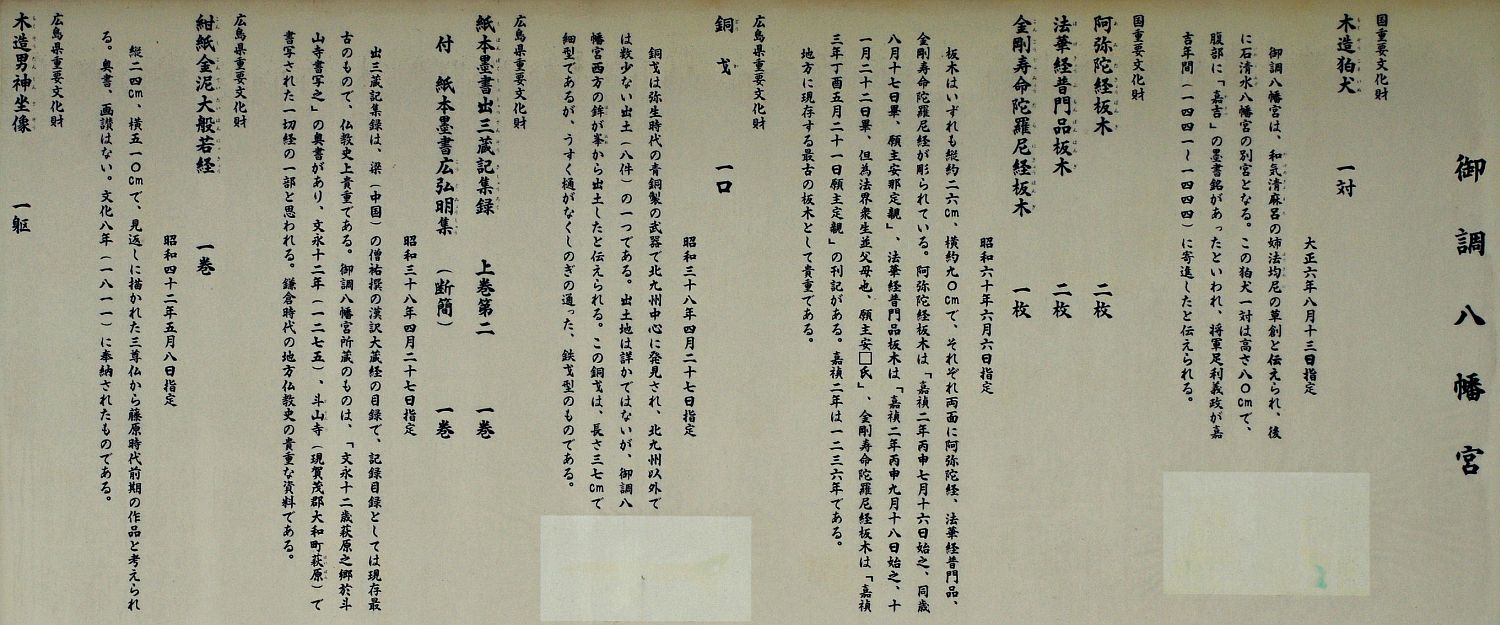 御調八幡宮
国重要文化財
木造狛犬　一対
大正六年八月十三日指定
御調八幡宮は、和気清麻呂の姉法均尼の草創と伝えられ、後
に石清水八幡宮の別宮となる。この狛犬一対は高さ八〇cmで、
腹部に「嘉吉」の墨書銘があったといわれ、将軍足利義政が嘉
吉年間（一四四一～一四四四）に寄進したと伝えられる。
国重要文化財
阿弥陀経板木　二枚
法華経普門品板木　二枚
金剛寿命陀羅尼経板木　一枚
昭和六十年六月六日指定
板木はいずれも縦約二六cm、横約九〇cmで、それぞれ両面に阿弥陀経、法華経普門品、
金剛寿命陀羅尼経が彫られている。阿弥陀経板木は「嘉禎二年丙申七月十六日始之、同歳
八月十七日畢、願主安那定親」、法華経普門品板木は「嘉禎二年丙申九月十八日始之、十
一月二十二日畢、但為法界衆生並父母也、願主安□氏」、金剛寿命陀羅尼経板木は「嘉禎
三年丁酉五月二十一日願主定親」の刊記がある。嘉禎二年は一二三六年である。
地方に現存する最古の板木として貴重である。
広島県重要文化財
銅戈　一口
昭和三十八年四月二十七日指定
銅戈は弥生時代の青銅製の武器で北九州中心に発見され、北九州以外で
は数少ない出土（八件）の一つである。出土地は詳かではないが、御調八
幡宮西方の鉾が峯から出土したと伝えられる。この銅戈は、長さ三七cmで
細型であるが、うすく樋がなくしのぎの通った、鉄戈型のものである。
広島県重要文化財
紙本墨書出三蔵記集録　上巻第二　一巻
付　紙本墨書広弘明集　（断簡）　一巻
昭和三十八年四月二十七日指定
出三蔵記集録は、梁（中国）の僧祐撰の漢訳大蔵経の目録で、記録目録としては現存最
古のもので、仏教史上貴重である。御調八幡宮所蔵のものは、「文永十二歳萩原之郷於斗
山寺書写之」の奥書があり、文永十二年（一二七五）、斗山寺（現賀茂郡大和町萩原）で
書写された一切経の一部と思われる。鎌倉時代の地方仏教史の貴重な資料である。
広島県重要文化財
紺紙金泥大般若経　一巻
昭和四十二年五月八日指定
縦二四cm、横五一〇cmで、見返しに描かれた三尊仏から藤原時代前期の作品と考えられ
る。奥書、画讃はない。文化八年（一八一一）に奉納されたものである。
広島県重要文化財
木造男神坐像　一躯